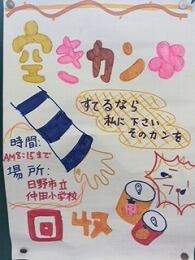 空きカン
すてるなら
私に下さい
そのカンを
時間:
AM8:15まで
場所:
日野市立
仲田小学校
回収